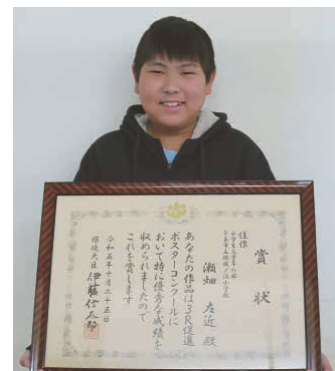 賞状
佳作
小学生高学年の部
瀬畑 左近 殿
あなたの作品は3R促進
ポスターコンクールに
おいて特に優秀な成績を
収められましたので
これを賞します
令和五年十月二十五日
環境大臣 伊藤信太郎